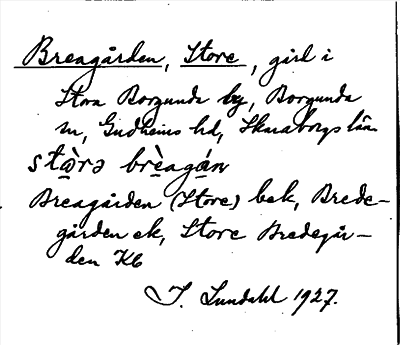 Breagården, Store, gård i
Stora Borgunda by, Borgunda
sn, Gudhems hd, Skaraborgs län.
stò̱rə brè̱agá̱n
Breagården (Store) bek, Brede-
gården ek, Store Bredegår-
den Kb
J. Lundahl 1927.